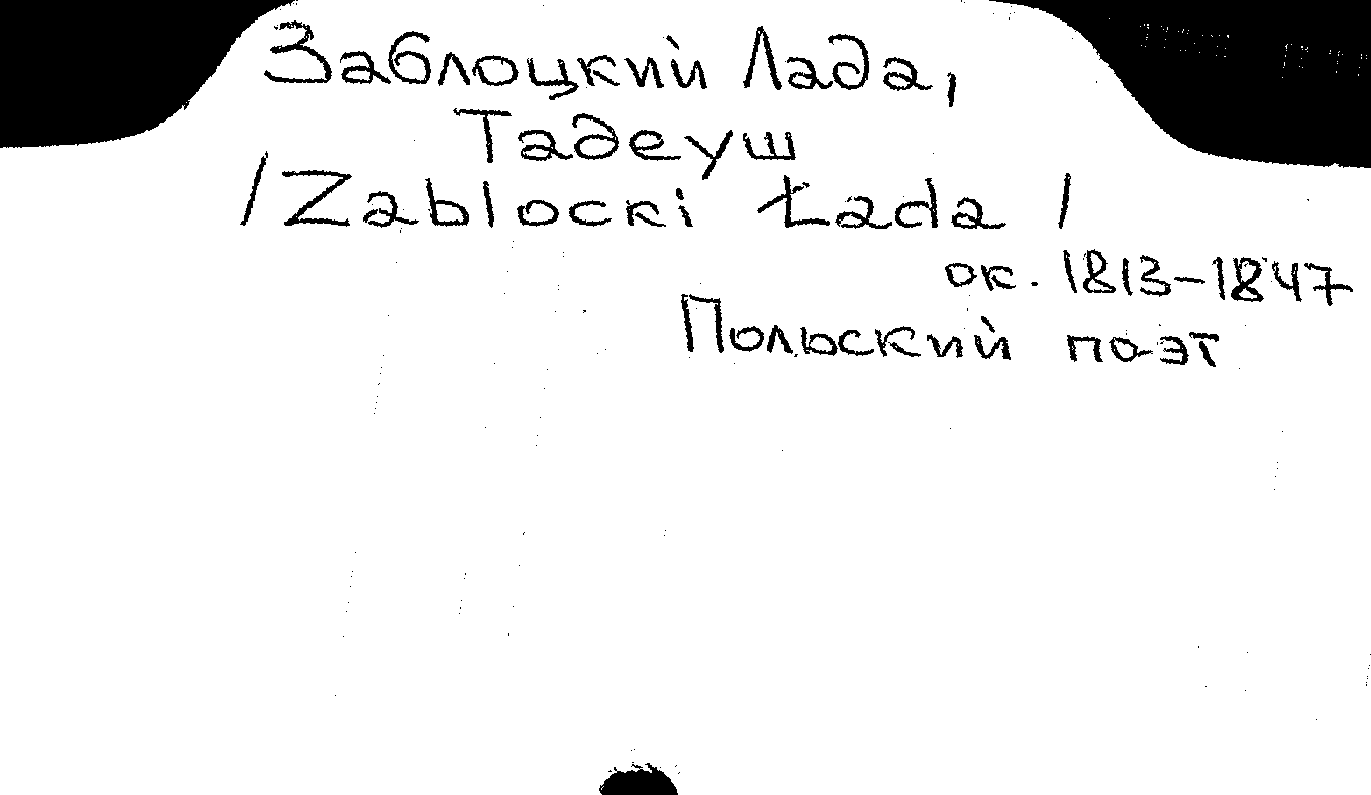 Заблоцкий Лада,
Тадеуш
/Zabłocki Łada/
ок. 1813-1847
Польский поэт